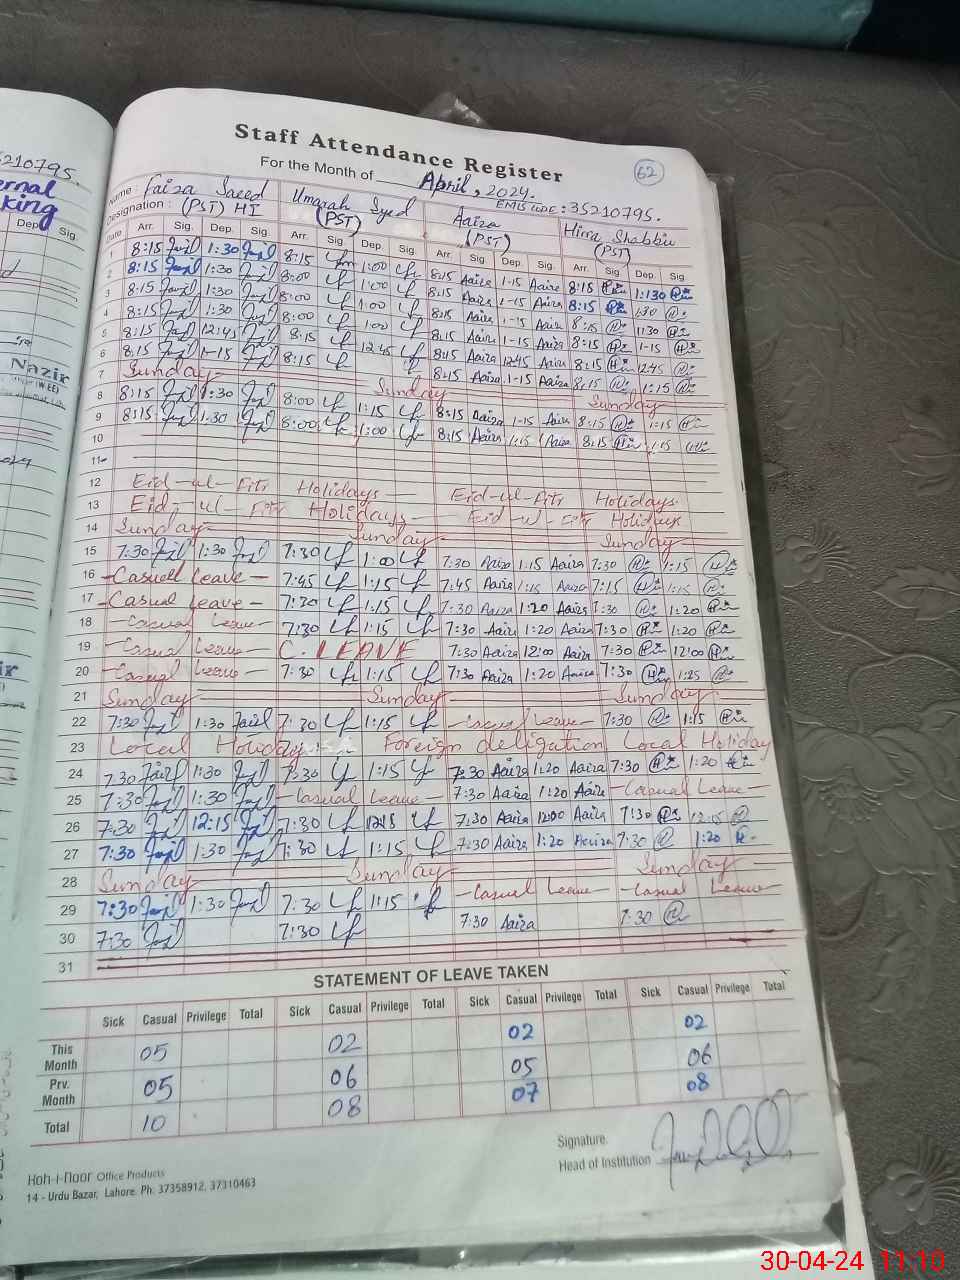 Staff Attendance Register
62
For the Month of April, 2024.
EMIS CODE : 35210795.
Name : Faiza Saeed Umarah Syed Aaiza Hirra Shabbir
Designation : (PST) HI (PST) (PST) (PST)
Date Arr. Sig. Dep. Sig. Arr. Sig. Dep. Sig. Arr. Sig. Dep. Sig. Arr. Sig. Dep. Sig.
1 8:15 1:30 8:15 1:00 8:15 Aaiza 1-15 Aaiza 8:15 1:30
2 8:15 1:30 8:00 1:00 8:15 Aaiza 1-15 Aaiza 8:15 1:30
3 8:15 1:30 8:00 1:00 8:15 Aaiza 1-15 Aaiza 8:15 1:30
4 8:15 1:30 8:00 1:00 8:15 Aaiza 1-15 Aaiza 8:15 1-15
5 8:15 12:45 8:15 12:45 8:15 Aaiza 12:45 Aaiza 8:15 12:45
6 8:15 1-15 8:15 8:15 Aaiza 1-15 Aaiza 8:15 1:15
7 Sunday Sunday Sunday
8 8:15 1:30 8:00 1:15 8:15 Aaiza 1-15 Aaiza 8:15 1:15
9 8:15 1:30 8:00 1:00 8:15 Aaiza 1:15 Aaiza 8:15 1:15
10
11
12 Eid-ul-Fitr Holidays Eid-ul-Fitr Holidays
13 Eid-ul-Fitr Holidays Eid-ul-Fitr Holidays
14 Sunday Sunday Sunday
15 7:30 1:30 7:30 1:00 7:30 Aaiza 1:15 Aaiza 7:30 1:15
16 Casual Leave 7:45 1:15 7:45 Aaiza 1:15 Aaiza 7:15 1:15
17 Casual Leave 7:30 1:15 7:30 Aaiza 1:20 Aaiza 7:30 1:20
18 Casual Leave 7:30 1:15 7:30 Aaiza 1:20 Aaiza 7:30 1:20
19 Casual Leave C. LEAVE 7:30 Aaiza 12:00 Aaiza 7:30 12:00
20 Casual Leave 7:30 1:15 7:30 Aaiza 1:20 Aaiza 7:30 1:25
21 Sunday Sunday Sunday
22 7:30 1:30 7:30 1:15 Casual Leave 7:30 1:15
23 Local Holiday Foreign deligation Local Holiday
24 7:30 1:30 7:30 1:15 7:30 Aaiza 1:20 Aaiza 7:30 1:20
25 7:30 1:30 Casual Leave 7:30 Aaiza 1:20 Aaiza Casual Leave
26 7:30 12:15 7:30 12:15 7:30 Aaiza 12:00 Aaiza 7:30 12:15
27 7:30 1:30 7:30 1:15 7:30 Aaiza 1:20 Aaiza 7:30 1:20
28 Sunday Sunday Sunday
29 7:30 1:30 7:30 1:15 Casual Leave Casual Leave
30 7:30 7:30 7:30 Aaiza 7:30
31
STATEMENT OF LEAVE TAKEN
Sick Casual Privilege Total Sick Casual Privilege Total Sick Casual Privilege Total Sick Casual Privilege Total
This Month 05 02 02 02
Prv. Month 05 06 05 06
Total 10 08 07 08
Signature.
Head of Institution
Koh-i-Noor Office Products
14 - Urdu Bazar, Lahore. Ph. 37358912, 37310463
5210795.
ernal
king
Dep. Sig.
Nazir
30-04-24 11:10